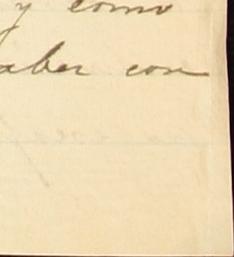 y como
aber con